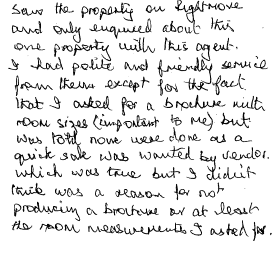 Saw the property on Rightmove
and only enquired about this
one property with this agent.
I had polite and friendly service
from them except for the fact
that I asked for a brochure with
room sizes (important to me) but
was told none were done as a
quick sale was wanted by vendor.
which was true but I didn't
think was a reason for not
producing a brochure or at least
the room measurements I asked for.